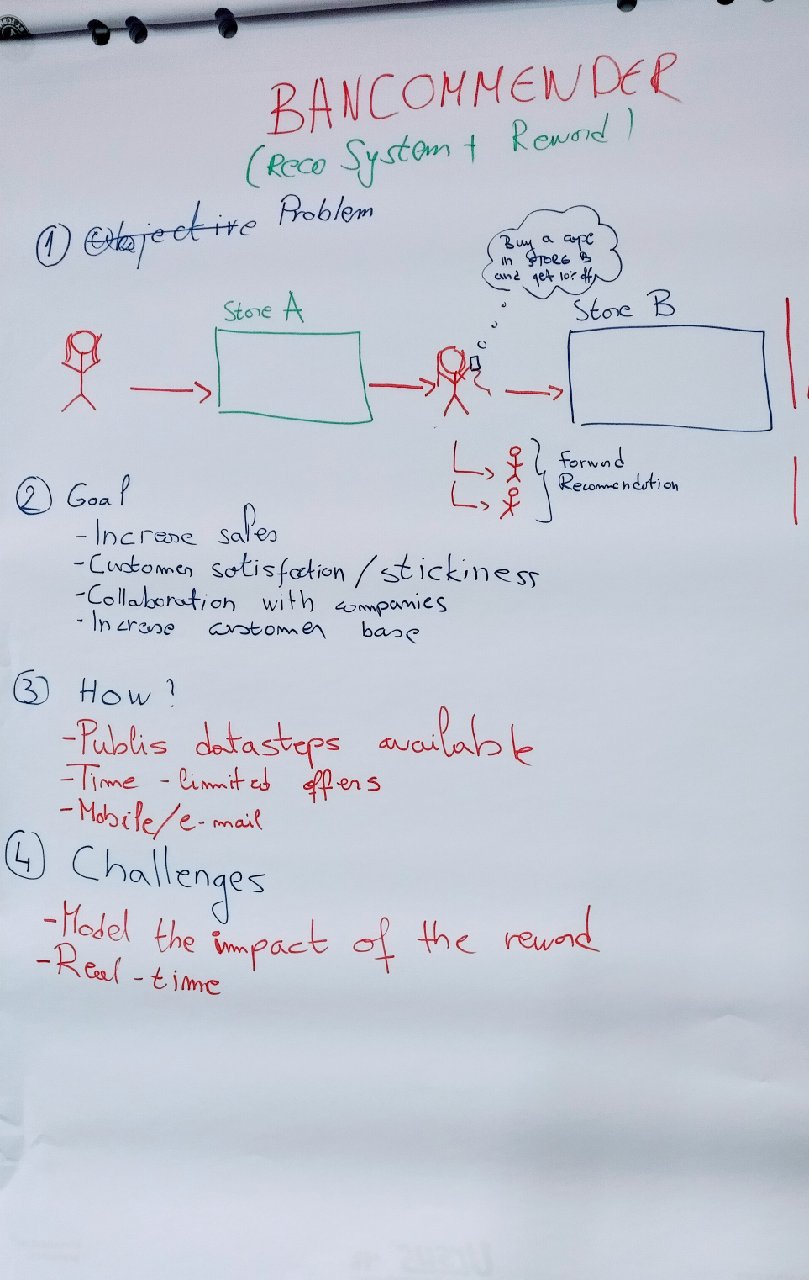 BANCOMMENDER
(Reco System + Reword)
① Objective Problem
Buy a
in STORE B
and get 10% off
Store A
Store B
Forwnd
Recommendation
② Goal
- Increase sales
- Customer satisfaction / stickiness
- Collaboration with companies
- Increase customer base
③ How?
- Publis datasteps available
- Time - limited offers
- Mobile/e-mail
④ Challenges
- Model the impact of the reword
- Real - time